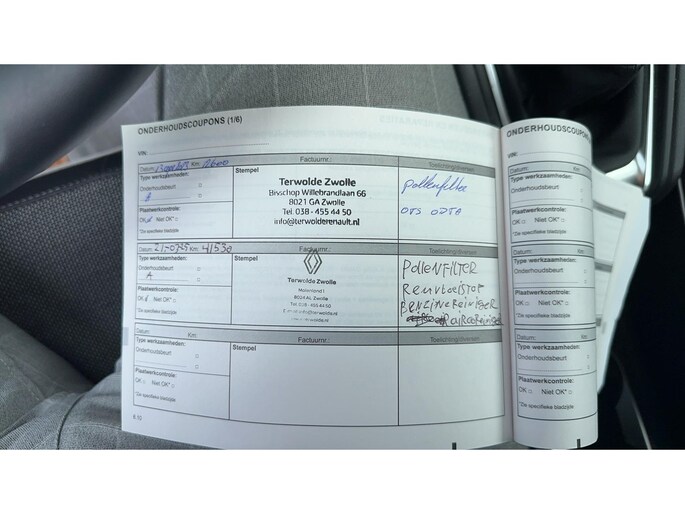 ONDERHOUDSCOUPONS (1/6)
VIN:
Datum: Km: Factuurnr.: Toelichting/diversen
Type werkzaamheden: Stempel
Onderhoudsbeurt
Plaatwerkcontrole:
OK Niet OK*
*Zie specifieke bladzijde
Terwolde Zwolle
Bisschop Willebrandlaan 66
8021 GA Zwolle
Tel. 038 - 455 44 50
info@terwolderenault.nl
Pollenfilter
Datum: 21-07-25 Km: 41530 Factuurnr.: Toelichting/diversen
Type werkzaamheden: Stempel
Onderhoudsbeurt
A
Plaatwerkcontrole:
OK Niet OK*
*Zie specifieke bladzijde
Terwolde Zwolle
8024 AL Zwolle
Tel. 038 - 455 44 50
POLLENFILTER
Remvloeistof
BENZINEREINIGER
Datum: Km: Factuurnr.: Toelichting/diversen
Type werkzaamheden: Stempel
Onderhoudsbeurt
Plaatwerkcontrole:
OK Niet OK*
*Zie specifieke bladzijde
ONDERHOUDSCOUPONS
VIN:
Datum: Km:
Type werkzaamheden:
Onderhoudsbeurt
Plaatwerkcontrole:
OK Niet OK*
*Zie specifieke bladzijde
Datum: Km:
Type werkzaamheden:
Onderhoudsbeurt
Plaatwerkcontrole:
OK Niet OK*
*Zie specifieke bladzijde
Datum: Km:
Type werkzaamheden:
Onderhoudsbeurt
Plaatwerkcontrole:
OK Niet OK*
*Zie specifieke bladzijde